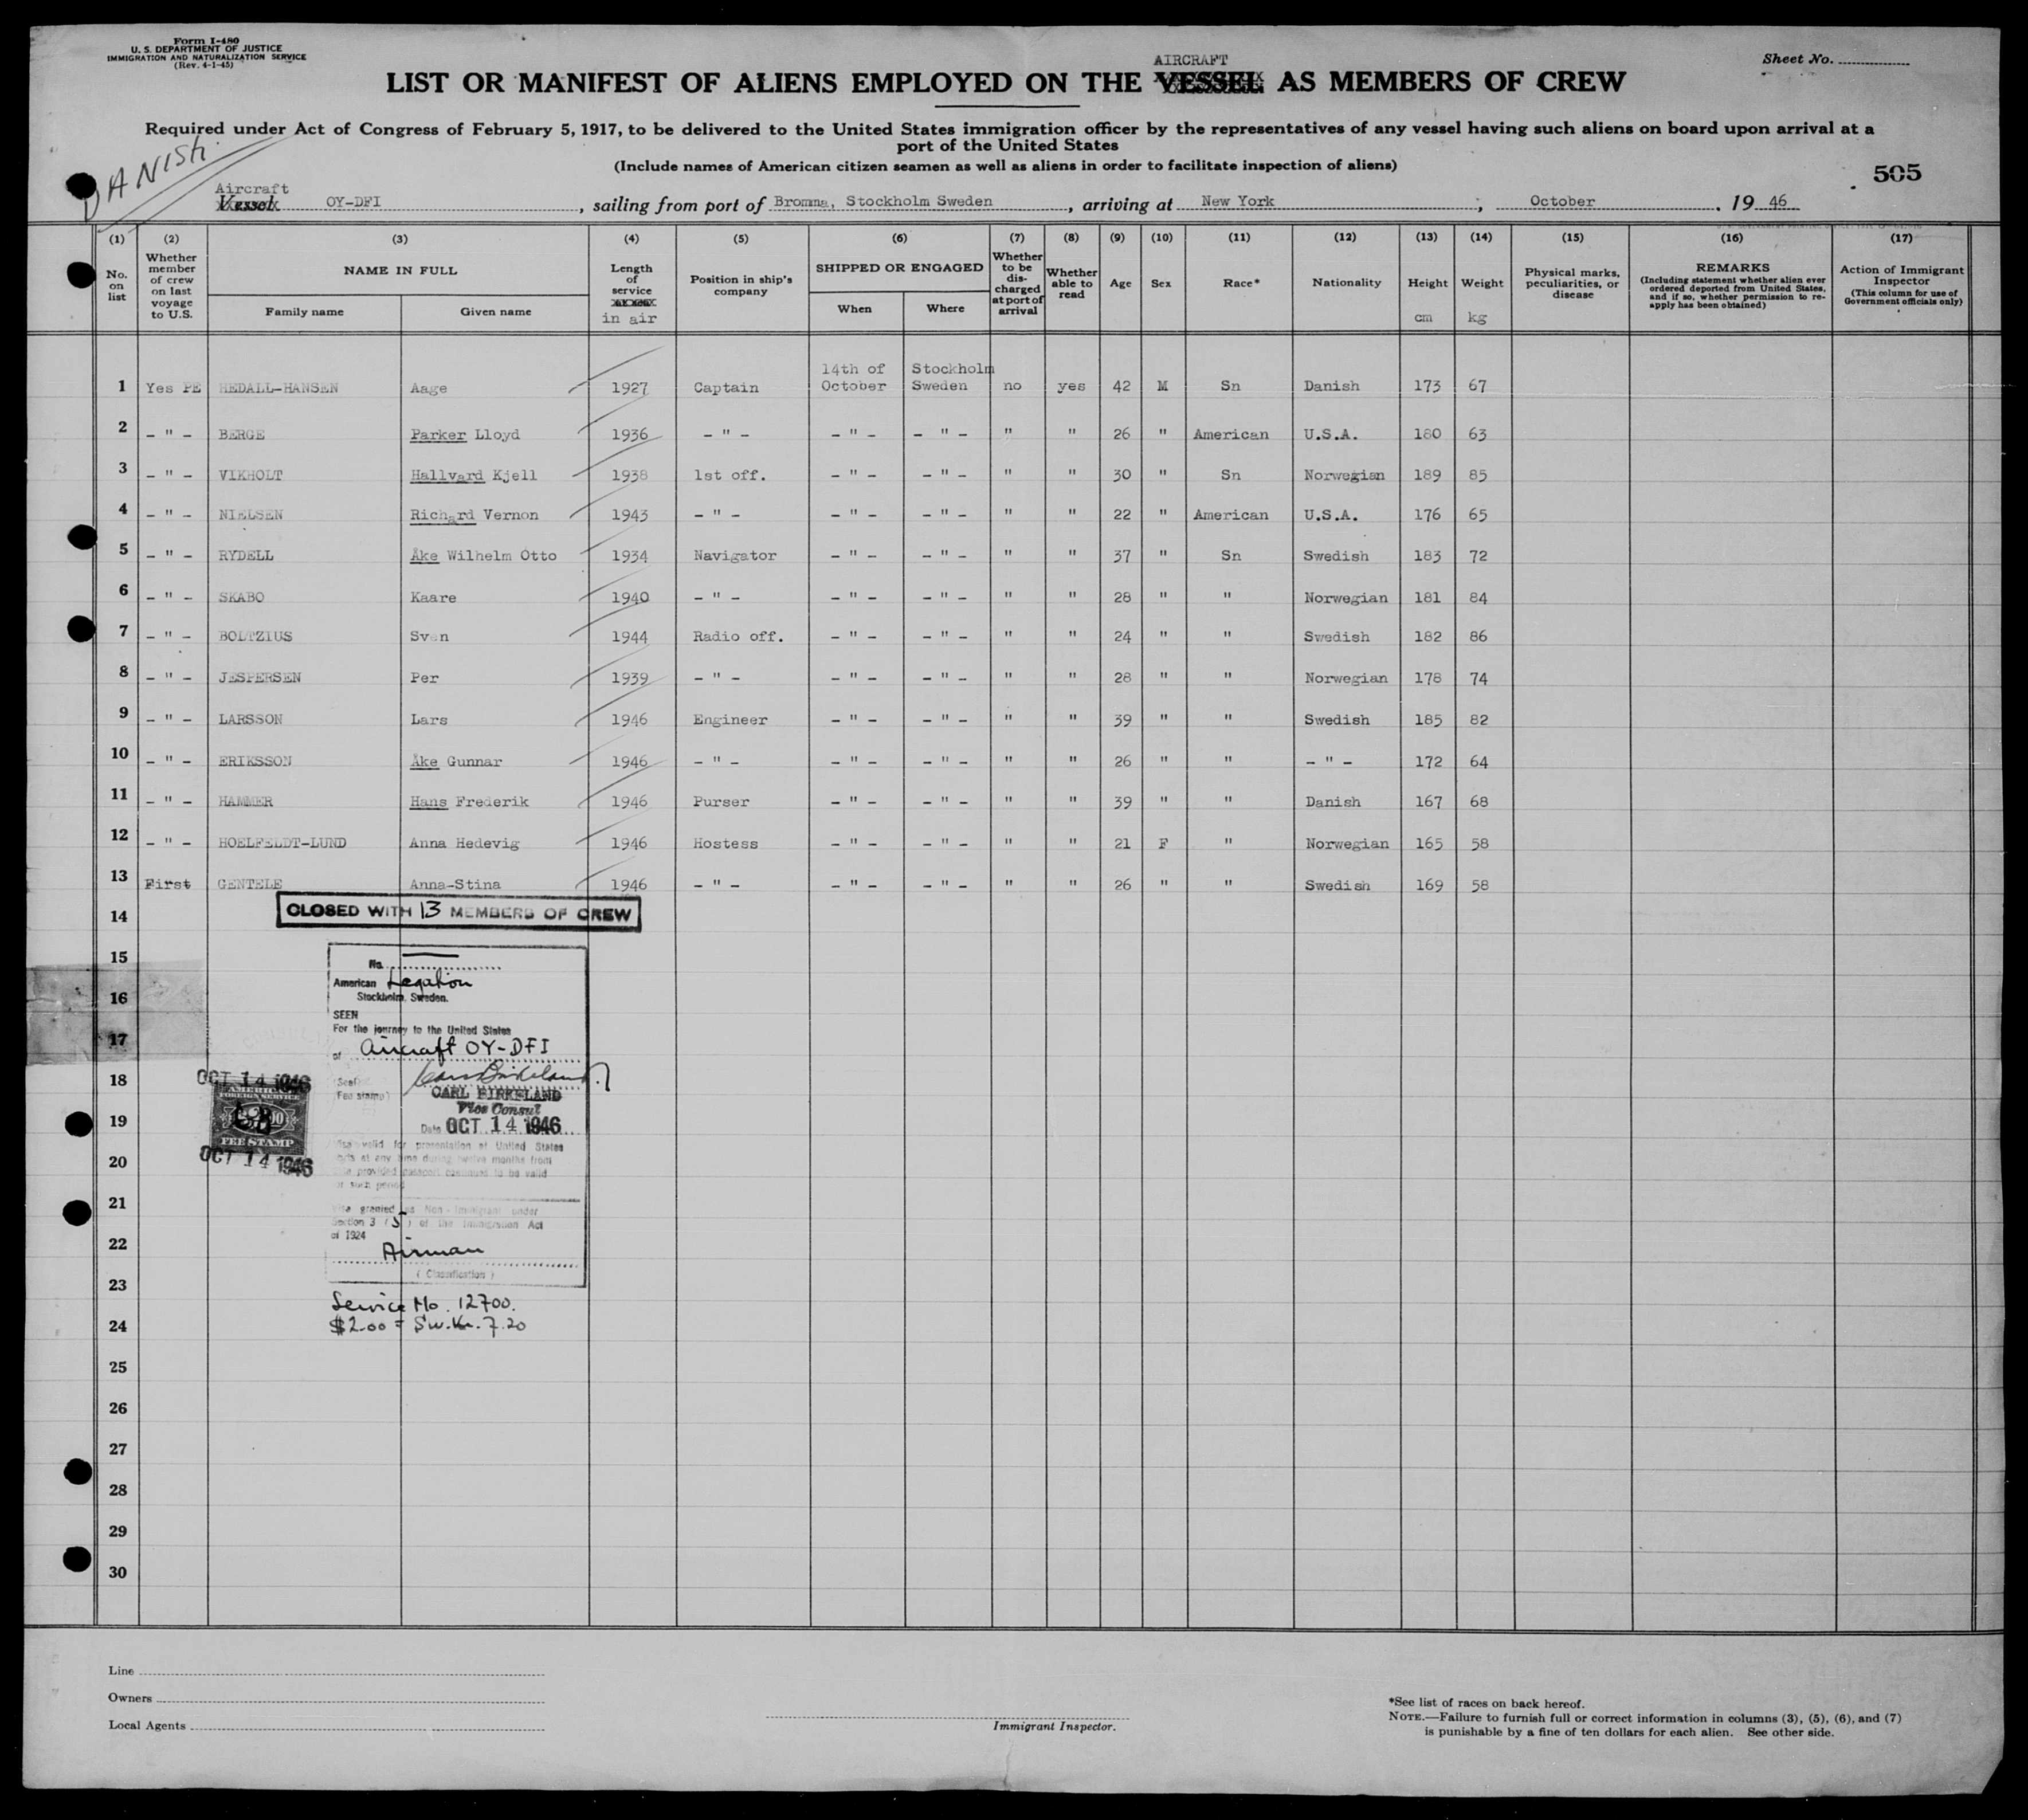 Form I-480
U. S. DEPARTMENT OF JUSTICE
IMMIGRATION AND NATURALIZATION SERVICE
(Rev. 4-1-45)
Sheet No.
AIRCRAFT
LIST OR MANIFEST OF ALIENS EMPLOYED ON THE VESSEL AS MEMBERS OF CREW
Required under Act of Congress of February 5, 1917, to be delivered to the United States immigration officer by the representatives of any vessel having such aliens on board upon arrival at a
port of the United States
(Include names of American citizen seamen as well as aliens in order to facilitate inspection of aliens)
DANISH
505
Aircraft
Vessel OY-DFI, sailing from port of Bromma, Stockholm Sweden, arriving at New York; October, 19 46
(1) (2) (3) (4) (5) (6) (7) (8) (9) (10) (11) (12) (13) (14) (15) (16) (17)
No. on list
Whether member of crew on last voyage to U.S.
NAME IN FULL
Family name
Given name
Length of service in air
Position in ship's company
SHIPPED OR ENGAGED
When
Where
Whether to be discharged at port of arrival
Whether able to read
Age
Sex
Race*
Nationality
Height cm
Weight kg
Physical marks, peculiarities, or disease
REMARKS
(Including statement whether alien ever ordered deported from United States, and if so, whether permission to re-apply has been obtained)
Action of Immigrant Inspector
(This column for use of Government officials only)
1 Yes PE HEDALL-HANSEN Aage 1927 Captain 14th of October Stockholm Sweden no yes 42 M Sn Danish 173 67
2 - " - BERGE Parker Lloyd 1936 - " - - " - - " - " " 26 " American U.S.A. 180 63
3 - " - VIKHOLT Hallvard Kjell 1938 1st off. - " - - " - " " 30 " Sn Norwegian 189 85
4 - " - NIELSEN Richard Vernon 1943 - " - - " - - " - " " 22 " American U.S.A. 176 65
5 - " - RYDELL Åke Wilhelm Otto 1934 Navigator - " - - " - " " 37 " Sn Swedish 183 72
6 - " - SKABO Kaare 1940 - " - - " - - " - " " 28 " " Norwegian 181 84
7 - " - BOLTZIUS Sven 1944 Radio off. - " - - " - " " 24 " " Swedish 182 86
8 - " - JESPERSEN Per 1939 - " - - " - - " - " " 28 " " Norwegian 178 74
9 - " - LARSSON Lars 1946 Engineer - " - - " - " " 39 " " Swedish 185 82
10 - " - ERIKSSON Åke Gunnar 1946 - " - - " - - " - " " 26 " " - " - 172 64
11 - " - HAMMER Hans Frederik 1946 Purser - " - - " - " " 39 " " Danish 167 68
12 - " - HOELFELDT-LUND Anna Hedevig 1946 Hostess - " - - " - " " 21 F " Norwegian 165 58
13 First GENTELE Anna-Stina 1946 - " - - " - - " - " " 26 " " Swedish 169 58
14
CLOSED WITH 13 MEMBERS OF CREW
15
No.
American Legation
16
Stockholm, Sweden.
SEEN
For the journey to the United States
17
of Aircraft OY-DFI
18
OCT 14 1946
(Seal
Fee stamp)
CARL BIRKELAND
Vice Consul
FOREIGN SERVICE
FEE STAMP
19
Date OCT 14 1946
OCT 14 1946
20
Visa valid for presentation at United States
ports at any time during twelve months from
date provided passport continues to be valid
for such period
21
Visa granted as Non-Immigrant under
Section 3 (5) of the Immigration Act
of 1924
22
Airman
(Classification)
23
Service No. 12700.
24
$2.00 = Sw.Kr. 7.20
25
26
27
28
29
30
Line
Owners
Local Agents
Immigrant Inspector.
*See list of races on back hereof.
NOTE.—Failure to furnish full or correct information in columns (3), (5), (6), and (7)
is punishable by a fine of ten dollars for each alien. See other side.